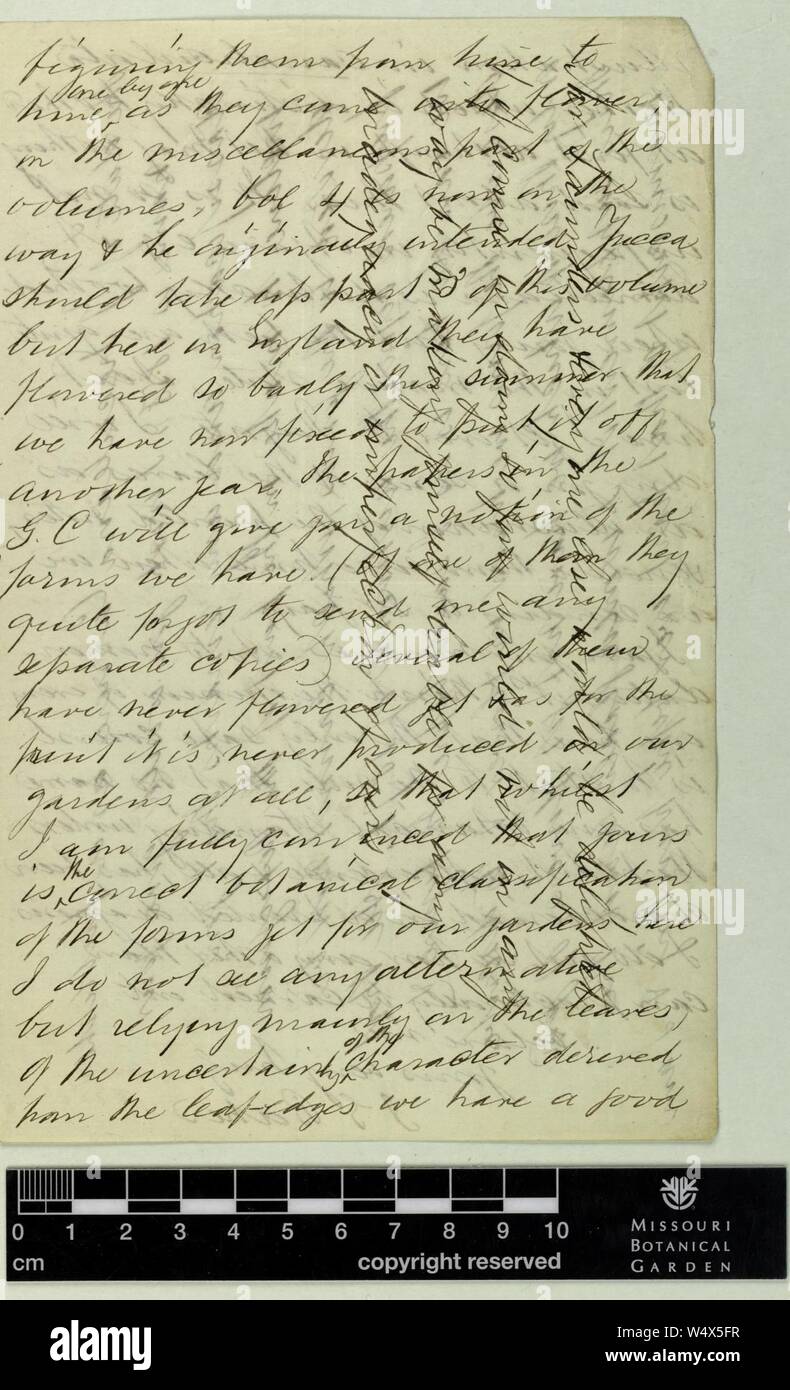 figuring them from time to
time one by one as they come into flower,
in the miscellaneous part of the
volumes. Vol 4 is now on the
way & he originally intended Yucca
should take up part of this volume
but here in England they have
flowered so badly this summer that
we have now fixed to put it off
another year. The papers in the
G. C will give you a notion of the
forms we have. (Of one of them they
quite forgot to send me any
separate copies) Several of them
have never flowered yet & as for the
fruit it is never produced in our
gardens at all, so that whilst
I am fully convinced that yours
is the correct botanical classification
of the forms yet for our gardens here
I do not see any alternative
but relying mainly on the leaves,
of the uncertainty of the character derived
from the leaf-edges we have a good
Mr Saunders everyone else would be delighted
of course produced so you would not in any
way be
is imperfect in yours
alamy
alamy
alamy
0 1 2 3 4 5 6 7 8 9 10
cm
copyright reserved
MISSOURI
BOTANICAL
GARDEN
alamy
Image ID: W4X5FR
www.alamy.com